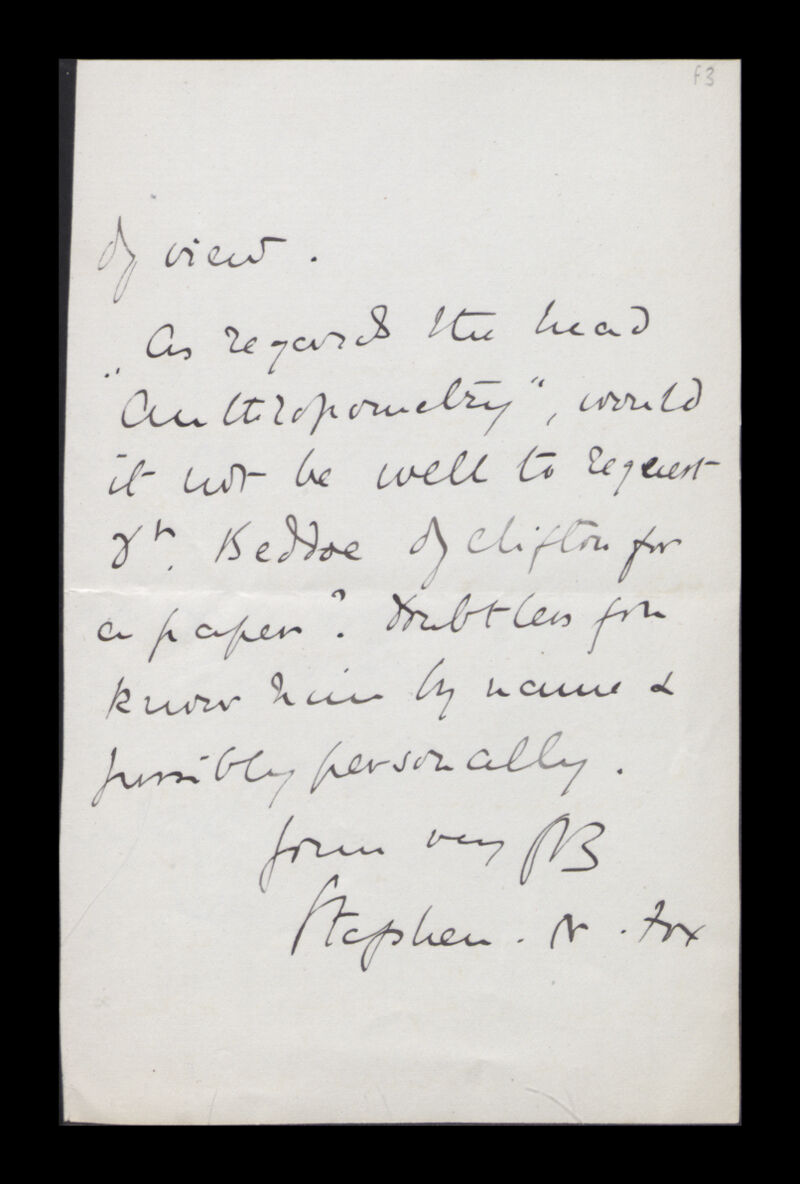 f3
of view.
As regards the head
"Anthropometry", would
it not be well to request
Dr. Beddoe of Clifton for
a paper? Doubtless you
know him by name &
possibly personally.
Yours very
Stephen. N. Fox